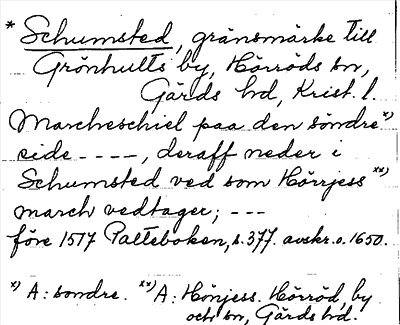 * Schumsted, gränsmärke till
Grönhults by, Hörröds sn,
Gärds hd, Krist. l.
Marcheschiel paa den söndre x)
side ----, deraff neder i
Schumsted ved som Hörrjess xx)
march vedtager; ---
före 1517 Palteboken, s. 377. avskr. o. 1650.
x) A: sondre. xx) A: Hönjess. Hörröd, by
och sn, Gärds hd.